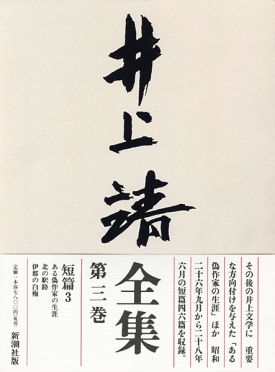 井上靖
全集
第三巻
その後の井上文学に 重要
な方向付けを与えた「ある
偽作家の生涯」ほか 昭和
二十六年九月から二十八年
六月の短篇四六篇を収録。
短篇3
ある偽作家の生涯
北の駅路
伊那の白梅
新潮社版